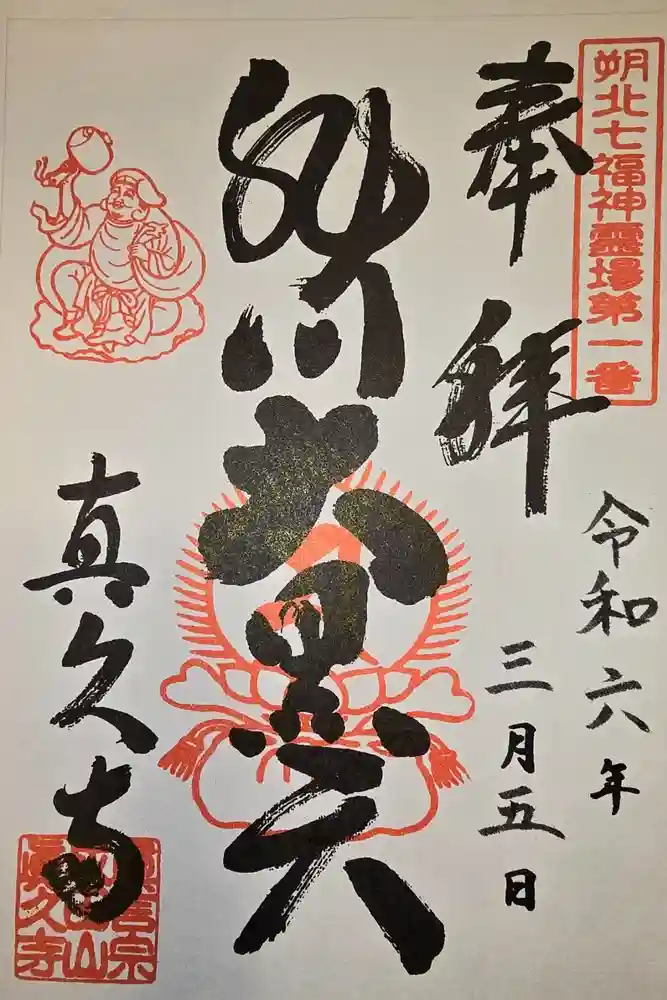 朔北七福神靈場第一番
奉拝
令和六年
三月五日
旭川大黒天
真久寺
眞言宗
山
眞久寺